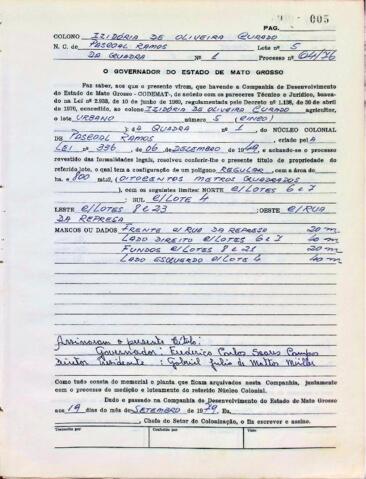 005
PAG.
COLONO IZIDÓRIA DE OLIVEIRA CURADO
N. C. de PASCOAL RAMOS Lote nº 5
DA QUADRA Nº 1 Processo nº 04/76
O GOVERNADOR DO ESTADO DE MATO GROSSO
Faz saber, aos que o presente virem, que havendo a Companhia de Desenvolvimento
do Estado de Mato Grosso - CODEMAT-, de acôrdo com os pareceres Técnico e Jurídico, basea-
do na Lei nº 2.933, de 10 de junho de 1969, regulamentada pelo Decreto nº 1.138, de 30 de abril
de 1970, concedido, ao colono IZIDÓRIA DE OLIVEIRA CURADO agricultor,
o lote URBANO número 5 (CINCO)
DA QUADRA nº 1 do NÚCLEO COLONIAL
DE PASCOAL RAMOS, criado pela
LEI Nº 336, de 06 de DEZEMBRO de 1949, e achando-se o processo
revestido das formalidades legais, resolveu conferir-lhe o presente título de propriedade do
referido lote, o qual tem a configuração de um polígono REGULAR, com a área de
ha. e 800 mts2. (OITOCENTOS METROS QUADRADOS
), com os seguintes limites: NORTE C/LOTES 6 e 7
; SUL C/LOTE 4
LESTE C/LOTES 8 e 23 ; OESTE C/RUA
DA REPRESA
MARCOS OU DADOS FRENTE C/ RUA DA REPRESA 20 m
LADO DIREITO C/LOTES 6 e 7 40 m
FUNDOS C/LOTES 8 e 23 20 m
LADO ESQUERDO C/LOTE 4 40 m
Assinaram o presente título:
Governador: Frederico Carlos Soares Campos
Diretor Presidente: Gabriel Julio de Mattos Müller
Como tudo consta do memorial e planta que ficam arquivados nesta Companhia, juntamente
com o processo de medição e loteamento do referido Núcleo Colonial.
Dado e passado na Companhia de Desenvolvimento do Estado de Mato Grosso
aos 19 dias do mês de SETEMBRO de 1979, Eu,
, Chefe do Setor de Colonização, o fiz escrever e assino.
Conferido por
Visto